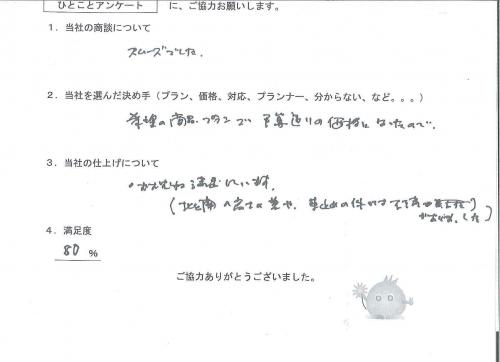 ひとことアンケート に、ご協力お願いします。
1．当社の商談について
スムーズでした。
2．当社を選んだ決め手（プラン、価格、対応、プランナー、分からない、など。。。）
希望の商品、プランで 予算通りの価格になったので。
3．当社の仕上げについて
おおむね満足しています。
の高さの差や、 の件では
4．満足度
80 %
ご協力ありがとうございました。